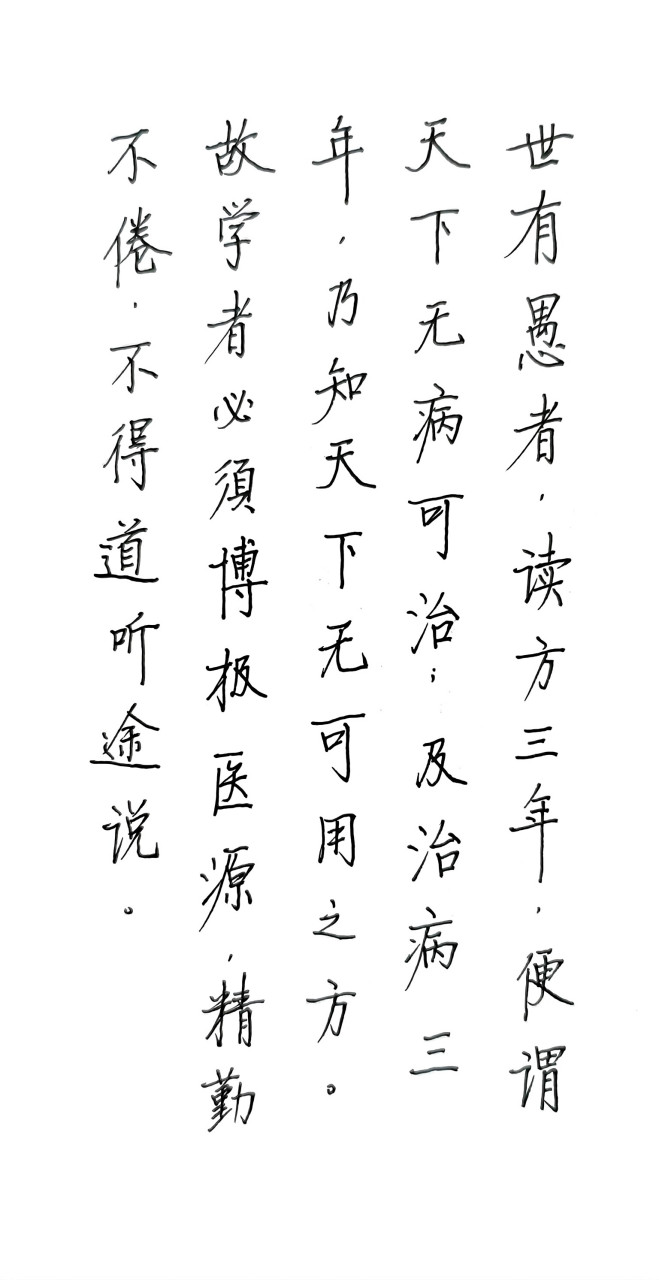 世有愚者，读方三年，便谓
天下无病可治；及治病三
年，乃知天下无可用之方。
故学者必須博极医源，精勤
不倦，不得道听途说。